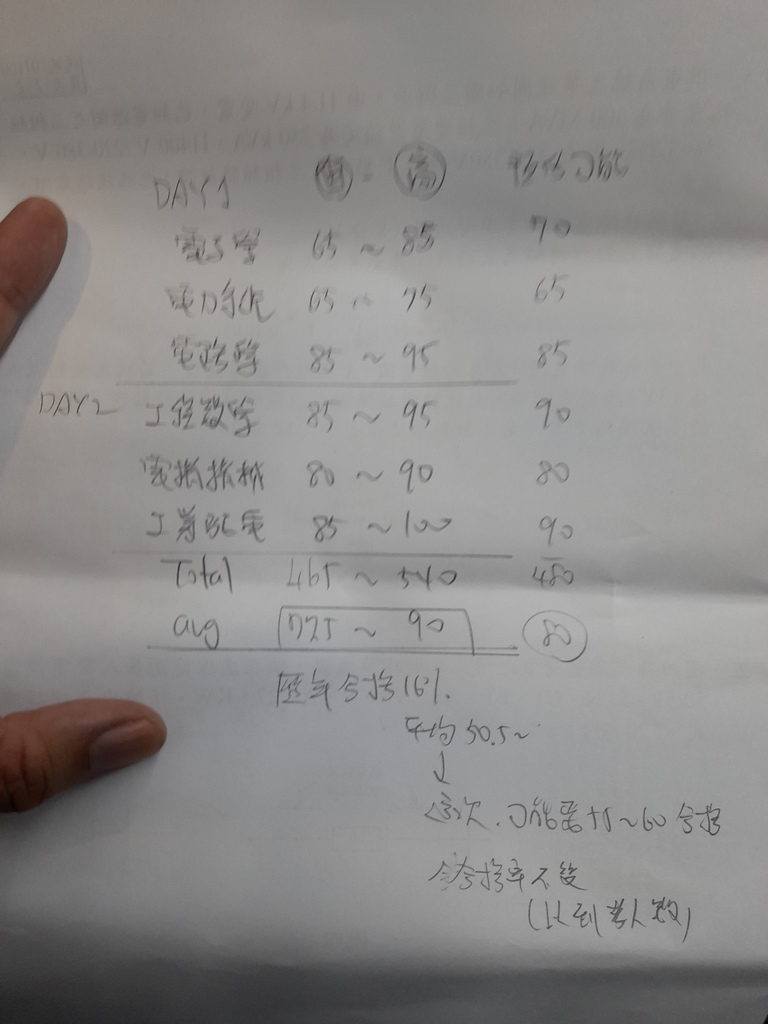 DAY1 低 高 預估可能
電子學 65 ~ 85 70
電力系統 65 ~ 75 65
電路學 85 ~ 95 85
DAY2 工程數學 85 ~ 95 90
電機機械 80 ~ 90 80
工業配電 85 ~ 100 90
Total 465 ~ 540 480
avg 77.5 ~ 90 80
歷年合格16%.
平均50.5~
↓
這次.可能要55~60合格
合格率不變
(比到考人數)